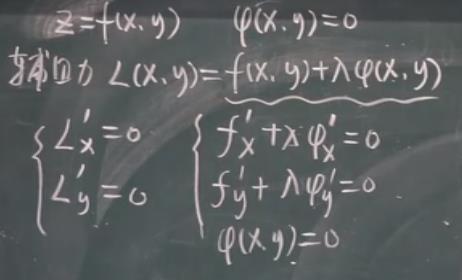 z=f(x,y) φ(x,y)=0
辅助 L(x,y)=f(x,y)+λφ(x,y)
{ L'x=0 { f'x+λφ'x=0
L'y=0 f'y+λφ'y=0
φ(x,y)=0